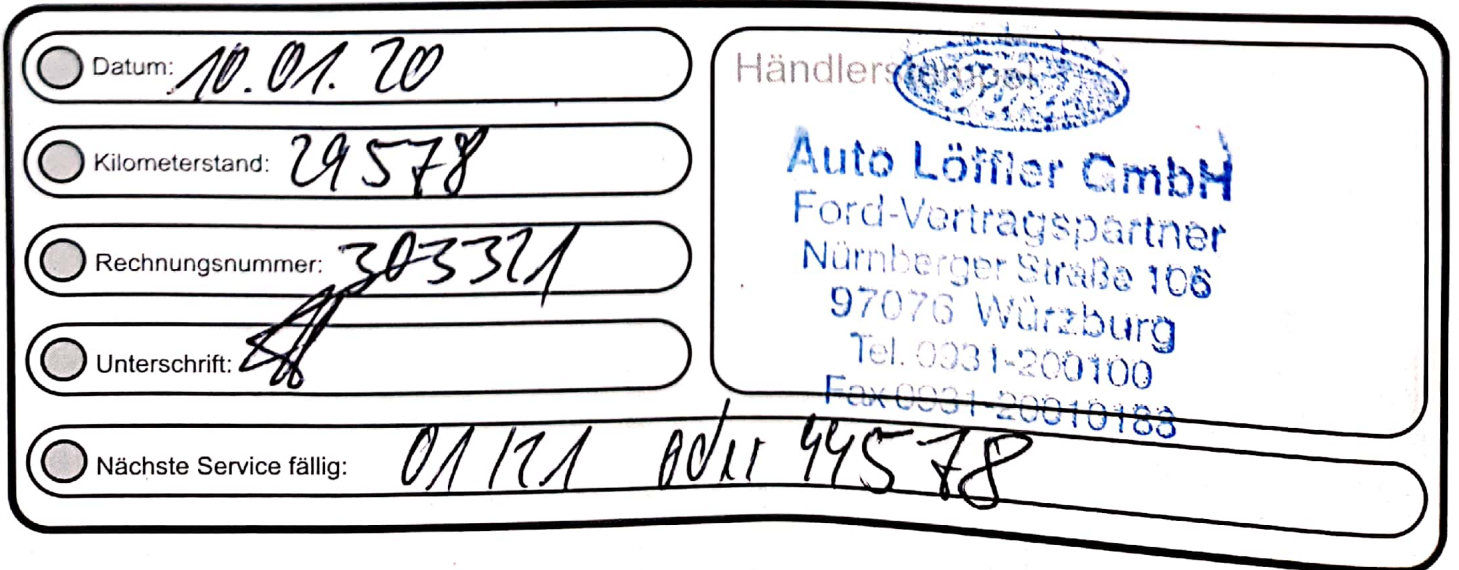 Datum: 10.01.20
Kilometerstand: 29578
Rechnungsnummer: 303321
Unterschrift:
Nächste Service fällig: 01/21 oder 44578
Händlerstempel
Auto Löffler GmbH
Ford-Vertragspartner
Nürnberger Straße 106
97076 Würzburg
Tel. 0931-200100
Fax 0931-20010188